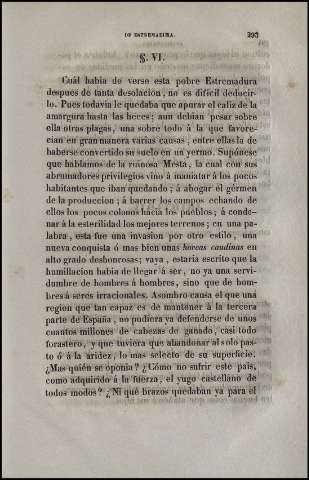 DE ESTREMADURA. 393
§. VI.
Cuál habia de verse esta pobre Estremadura
despues de tanta desolacion, no es difícil deducir-
lo. Pues todavia le quedaba que apurar el caliz de la
amargura hasta las heces; aun debian pesar sobre
ella otras plagas, una sobre todo á la que favore-
cian en gran manera varias causas, entre ellas la de
haberse convertido su suelo en un yermo. Supónese
que hablamos de la ruinosa Mesta, la cual con sus
abrumadores privilegios vino á maniatar á los pocos
habitantes que iban quedando; á ahogar el gérmen
de la produccion; á barrer los campos echando de
ellos los pocos colonos hácia los pueblos; á conde-
nar á la esterilidad los mejores terrenos; en una pa-
labra, esta fue una invasion por otro estilo, una
nueva conquista ó mas bien unas horcas caudinas en
alto grado deshonrosas; vaya, estaria escrito que la
humillacion habia de llegar á ser, no ya una servi-
dumbre de hombres á hombres, sino que de hom-
bres á seres irracionales. Asombro causa el que una
region que tan capaz es de mantener á la tercera
parte de España, no pudiera ya defenderse de unos
cuantos millones de cabezas de ganado, casi todo
forastero, y que tuviera que abandonar al solo pas-
to ó á la aridez, lo mas selecto de su superficie.
¿Mas quién se oponia? ¿Cómo no sufrir este pais,
como adquirido á la fuerza, el yugo castellano de
todos modos? ¿Ni qué brazos quedaban ya para el